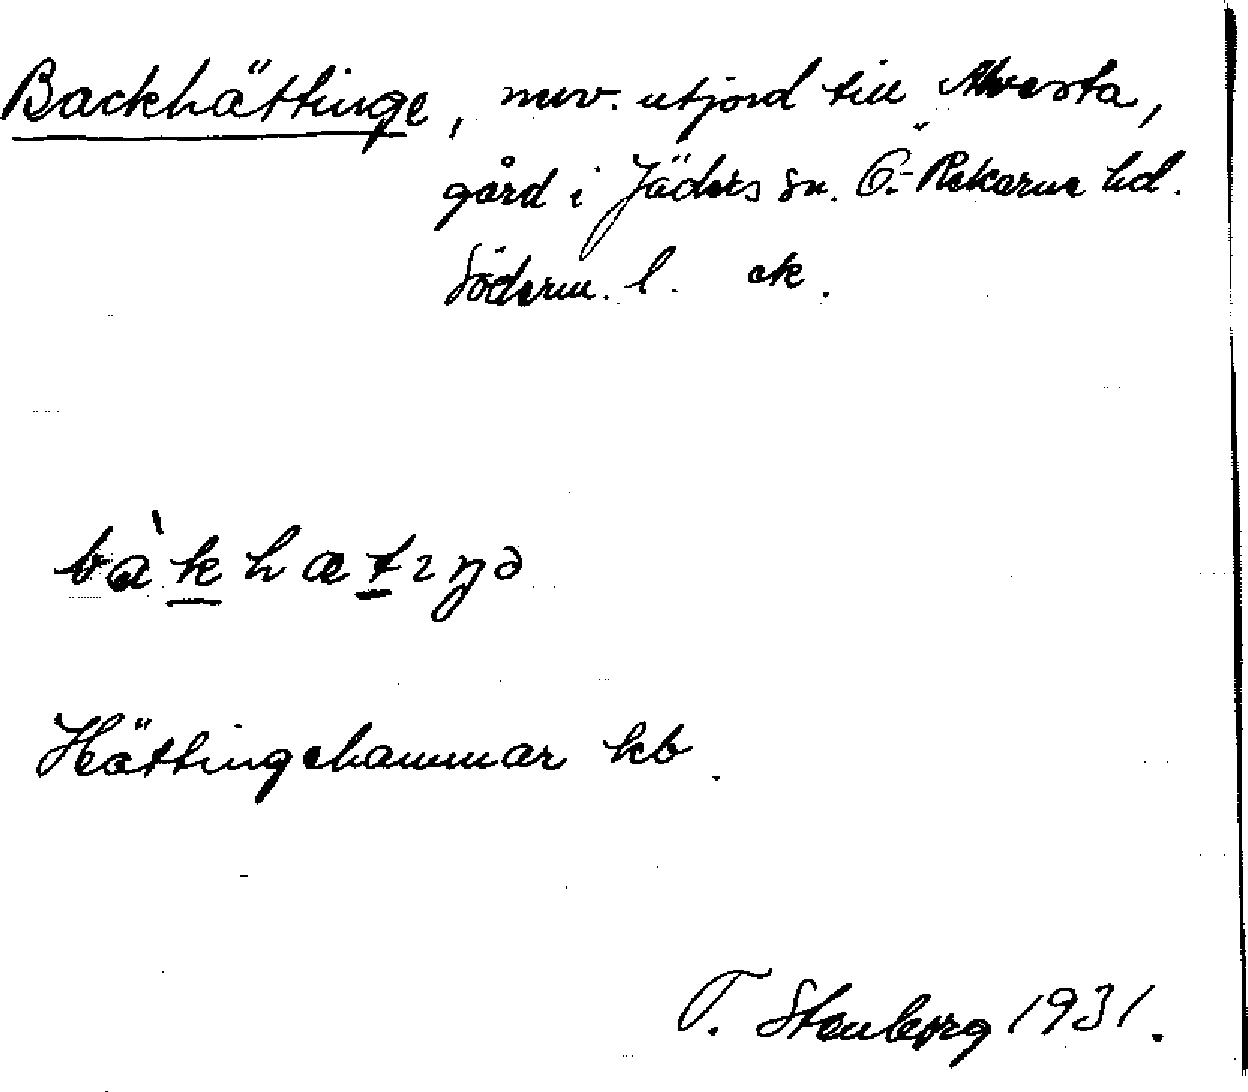 Backhättinge, nuv. utjord till Alvesta,
gård i Jäders sn. Ö.-Rekarne hd.
Söderm. l. ek.
bàkhætıŋə
Hättingehammar kb.
T. Stenberg 1931.